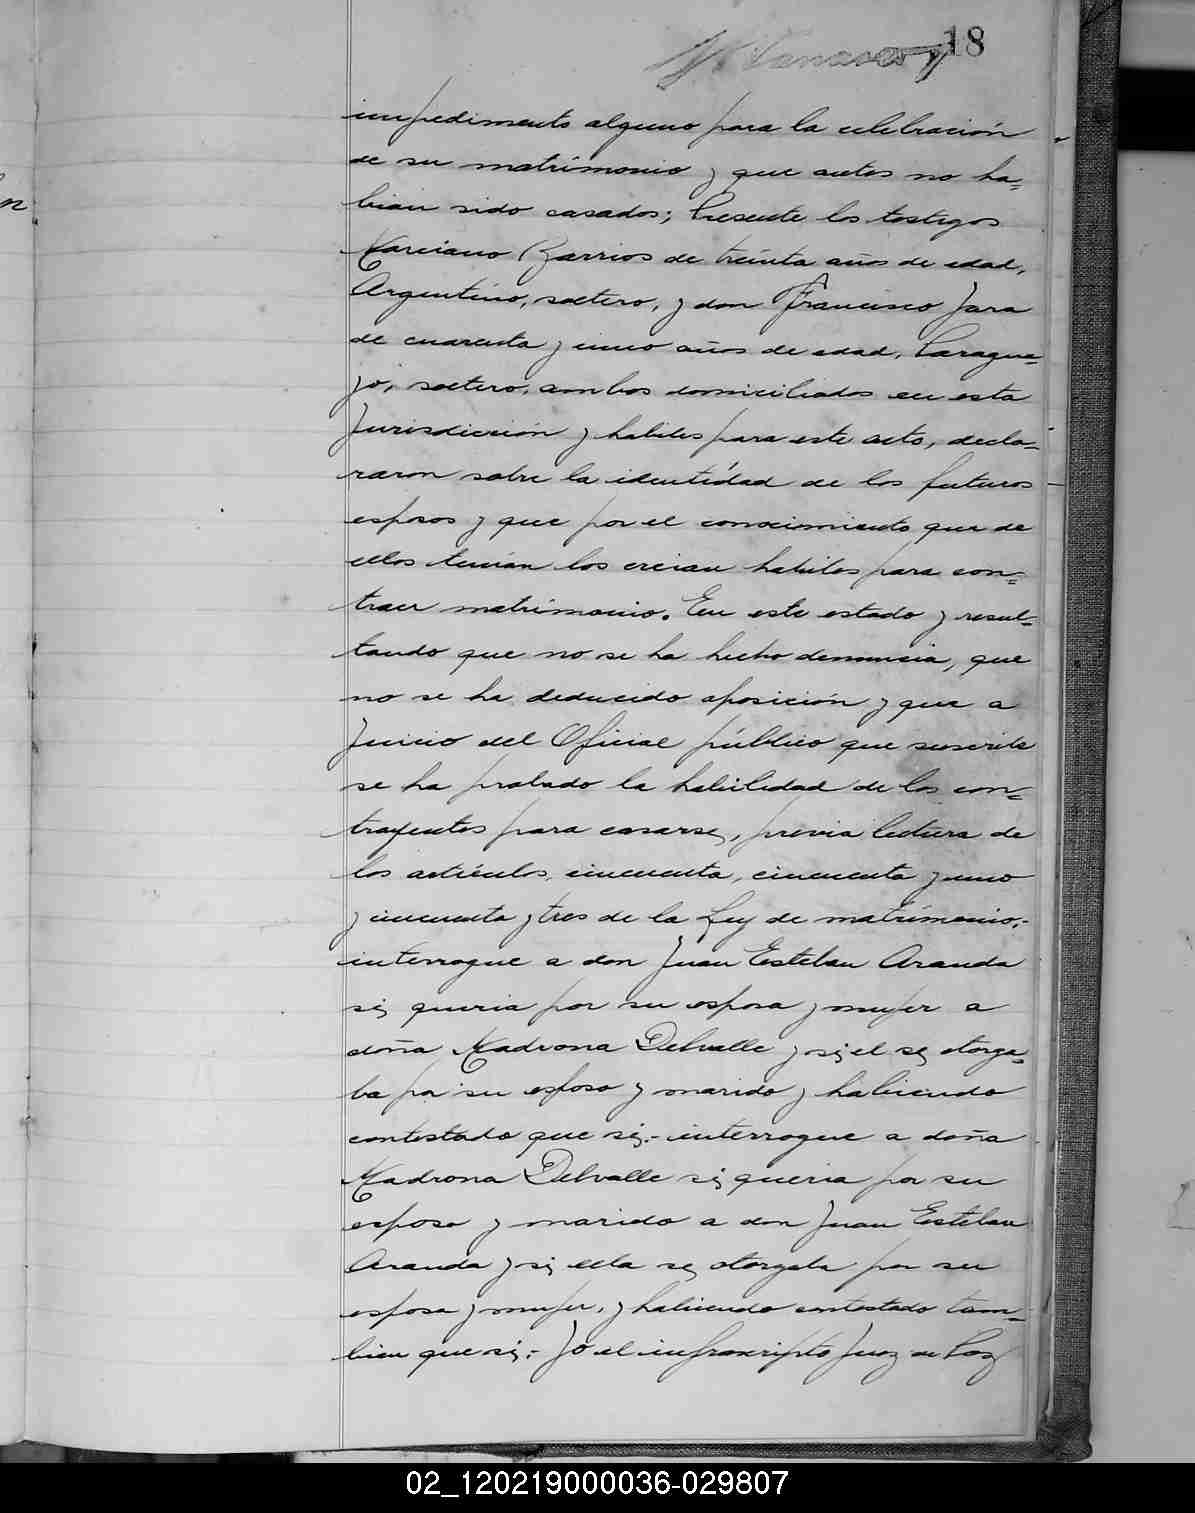 18
impedimento alguno para la celebración
de su matrimonio y que antes no ha-
bian sido casados; Presente los testigos
Marciano Barrios de treinta años de edad,
Argentino, soltero, y don Francisco Jara
de cuarenta y cinco años de edad, Paragua-
yo, soltero, ambos domiciliados en esta
Jurisdicción y habiles para este acto, decla-
raron sobre la identidad de los futuros
esposos y que por el conocimiento que de
ellos tenian los creian habiles para con-
traer matrimonio. En este estado y resul-
tando que no se ha hecho denuncia, que
no se ha deducido oposición y que a
juicio del Oficial público que suscribe
se ha probado la habilidad de los con-
trayentes para casarse, previa lectura de
los artículos, cincuenta, cincuenta y uno
y cincuenta y tres de la Ley de matrimonio.-
interrogue a don Juan Esteban Aranda
si queria por su esposa y mujer a
doña Madrona Delvalle y si el se otorga-
ba por su esposo y marido y habiendo
contestado que si.- interrogue a doña
Madrona Delvalle si queria por su
esposo y marido a don Juan Esteban
Aranda y si ella se otorgaba por su
esposa y mujer, y habiendo contestado tam-
bien que si.- Yo el infrascripto Juez de Paz
02_120219000036-029807